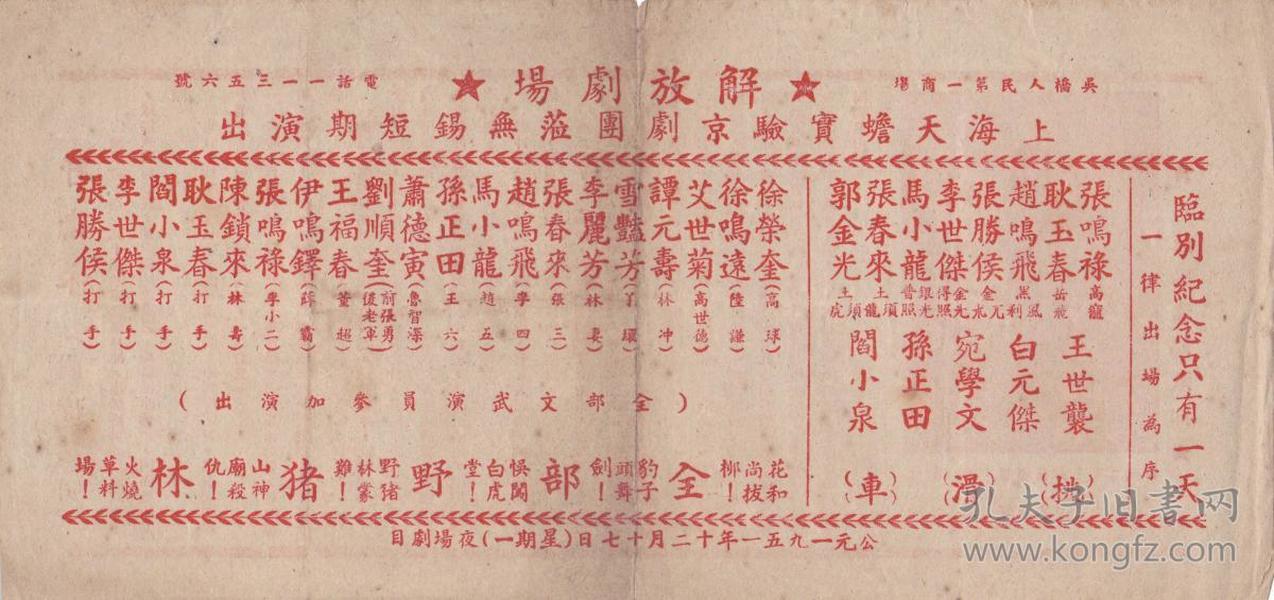 吳橋人民第一商場
★解放劇場★
電話一一三五六號
上海天蟾實驗京劇團蒞無錫短期演出
臨別紀念只有一天
一律出場為序
張鳴祿 高寵
耿玉春 岳飛
趙鳴飛 黑風利
張勝侯 金兀朮
李世傑
馬小龍
張春來 土龍須
郭金光 土須虎
王世襲
白元傑
宛學文
孫正田
閻小泉
(挑)(滑)(車)
徐榮奎(高球)
徐鳴遠(陸謙)
艾世菊(高世德)
譚元壽(林冲)
雪豔芳(丫環)
李麗芳(林妻)
張春來(張三)
趙鳴飛(李四)
馬小龍(趙五)
孫正田(王六)
蕭德寅(魯智深)
劉順奎(前張勇 後老軍)
王福春(董超)
伊鳴鐸(薛霸)
張鳴祿(李小二)
陳鎖來(林壽)
耿玉春(打手)
閻小泉(打手)
李世傑(打手)
張勝侯(打手)
(全部文武演員參加演出)
花和尚拔柳!
全
豹子頭舞劍!
部
悞闖白虎堂!
野
野猪林蒙難!
猪
山神廟殺仇!
林
火燒草料場!
公元一九五一年十二月十七日(星期一)夜場劇目
孔夫子旧书网
www.kongfz.com